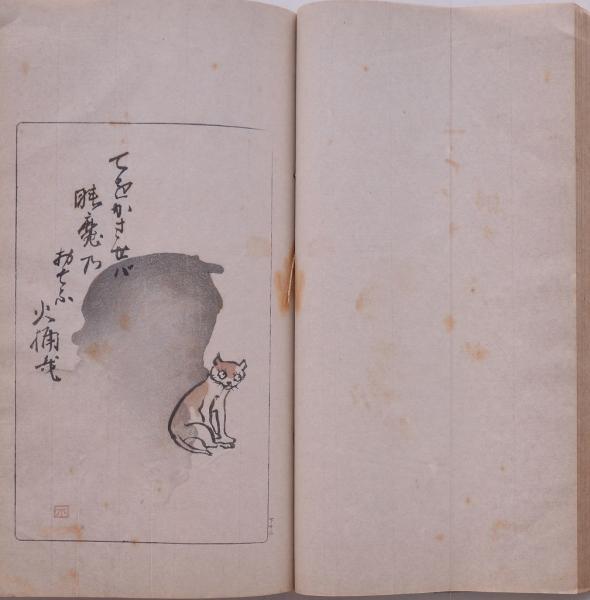 てをかさせバ
睡魔乃
おそふ
火桶哉